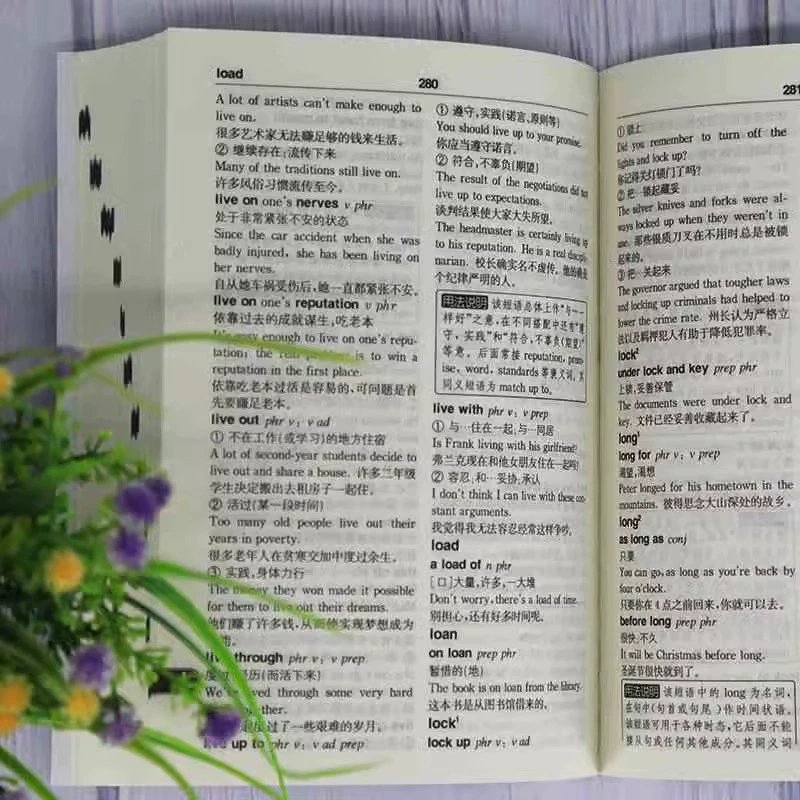 load
280
A lot of artists can't make enough to
live on.
很多艺术家无法赚足够的钱来生活。
② 继续存在;流传下来
Many of the traditions still live on.
许多风俗习惯流传至今。
live on one's nerves v phr
处于非常紧张不安的状态
Since the car accident when she was
badly injured, she has been living on
her nerves.
自从她车祸受伤后,她一直都紧张不安。
live on one's reputation v phr
依靠过去的成就谋生,吃老本
It's easy enough to live on one's repu-
tation; the real problem is to win a
reputation in the first place.
依靠吃老本过活是容易的,可问题是首
先要赚足老本。
live out phr v; v ad
① 不在工作(或学习)的地方住宿
A lot of second-year students decide to
live out and share a house. 许多二年级
学生决定搬出去租房子一起住。
② 活过(某一段时间)
Too many old people live out their
years in poverty.
很多老年人在贫寒交加中度过余生。
③ 实践,身体力行
The money they won made it possible
for them to live out their dreams.
他们赚了许多钱,从而使实现梦想成为
live through phr v; v prep
经历(而活下来)
We've lived through some very hard
together.
度过了一些艰难的岁月。
live up to phr v; v ad prep
① 遵守,实践(诺言、原则等)
You should live up to your promise.
你应当遵守诺言。
② 符合,不辜负(期望)
The result of the negotiations did not
live up to expectations.
谈判结果使大家大失所望。
The headmaster is certainly living up
to his reputation. He is a real discipli-
narian. 校长确实名不虚传。他的确是
个纪律严明的人。
用法说明 该短语总体上作“与一
样好”之意,在不同搭配中还有“遵
守,实践”和“符合,不辜负(期望)”
等意。后面常接 reputation, prom-
ise, word, standards 等兼义词,其
同义短语为 match up to。
live with phr v; v prep
① 与…住在一起;与…同居
Is Frank living with his girlfriend?
弗兰克现在和他女朋友住在一起吗?
② 容忍;和…妥协;承认
I don't think I can live with these con-
stant arguments.
我觉得我无法容忍经常这样争吵。
load
a load of n phr
[口]大量,许多,一大堆
Don't worry, there's a load of time.
别担心,还有好多时间呢。
loan
on loan prep phr
暂借的(地)
The book is on loan from the library.
这本书是从图书馆借来的。
lock¹
lock up phr v; v ad
281
① 锁上
Did you remember to turn off the
lights and lock up?
你记得关灯锁门了吗?
② 把…锁起藏妥
The silver knives and forks were al-
ways locked up when they weren't in
use. 那些银质刀叉在不用时总是被锁
起来的。
③ 把…关起来
The governor argued that tougher laws
and locking up criminals had helped to
lower the crime rate. 州长认为严格立
法以及羁押犯人有助于降低犯罪率。
lock²
under lock and key prep phr
上锁,妥善保管
The documents were under lock and
key. 文件已经妥善收藏起来了。
long¹
long for phr v; v prep
渴望,渴想
Peter longed for his hometown in the
mountains. 彼得思念大山深处的故乡。
long²
as long as conj
只要
You can go, as long as you're back by
four o'clock.
只要你在4点之前回来,你就可以去。
before long prep phr
很快;不久
It will be Christmas before long.
圣诞节很快就到了。
用法说明 该短语中的 long 为名词,
在句中(句首或句尾)作时间状语。
该短语可用于各种时态,它后面不能
接从句或任何其他成分。其同义词